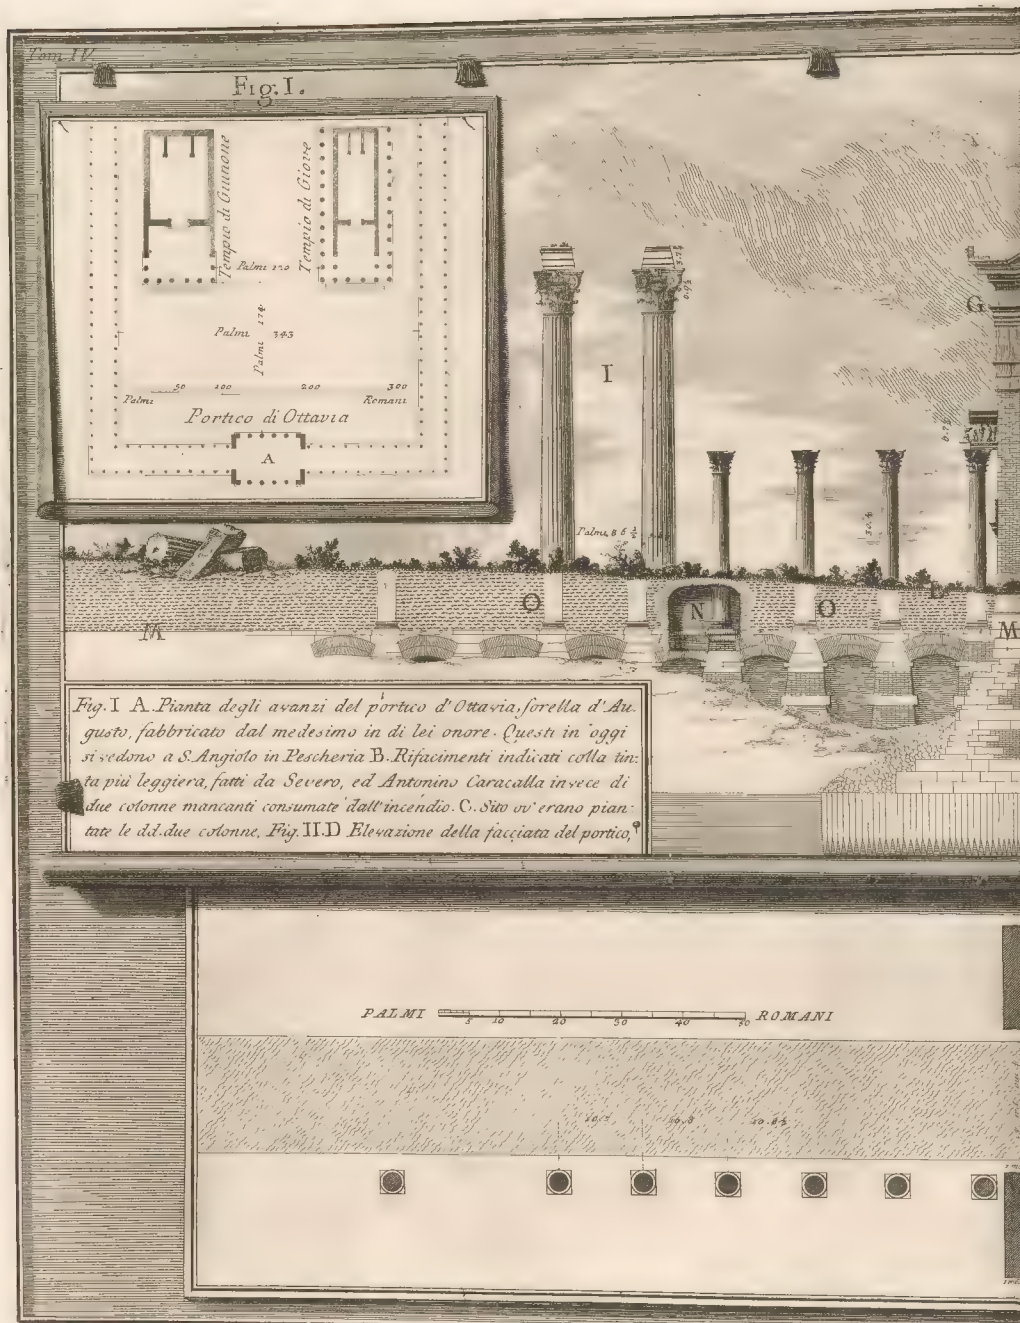 Tom IV.
Fig. I.
Tempio di Giunone
Tempio di Giove
Palmi 120
Palmi 174
Palmi 343
50 100 200 300
Palmi Romani
Portico di Ottavia
A
G
I
Palmi 86 ½
O
N
O
M
M
Fig. I A. Pianta degli avanzi del portico d'Ottavia, sorella d'Au-
gusto, fabbricato dal medesimo in di lei onore. Questi in oggi
si vedono a S. Angiolo in Pescheria B. Rifacimenti indicati colla tin-
ta più leggiera, fatti da Severo, ed Antonino Caracalla invece di
due colonne mancanti consumate dall'incendio. C. Sito ov'erano pian-
tate le dd. due colonne. Fig. II. D Elevazione della facciata del portico,
PALMI ROMANI
5 10 20 30 40 50